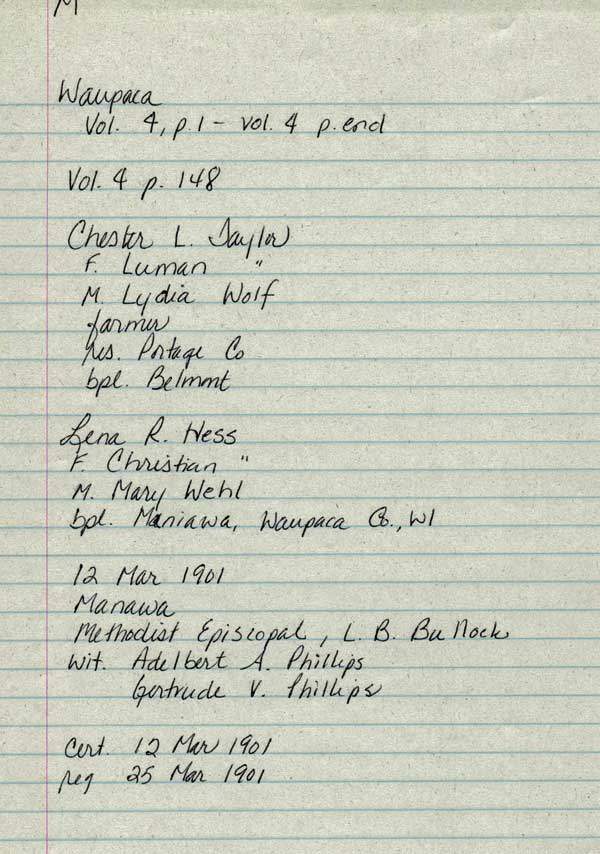 M
Waupaca
Vol. 4, p.1 - vol. 4 p. end
Vol. 4 p. 148
Chester L. Taylor
F. Luman "
M. Lydia Wolf
farmer
res. Portage Co
bpl. Belmont
Lena R. Hess
F. Christian "
M. Mary Wehl
bpl. Maniawa, Waupaca Co., WI
12 Mar 1901
Manawa
Methodist Episcopal, L. B. Bullock
Wit. Adelbert A. Phillips
Gertrude V. Phillips
Cert. 12 Mar 1901
reg 25 Mar 1901